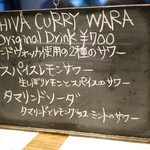 SHIVA CURRY WARA
Original Drink ¥700
ンドウォッカ使用の2種のサワー
スパイスレモンサワー
生しぼりレモンとスパイスのサワー
タマリンドソーダ
タマリンドとレモングラス・ミントのサワー